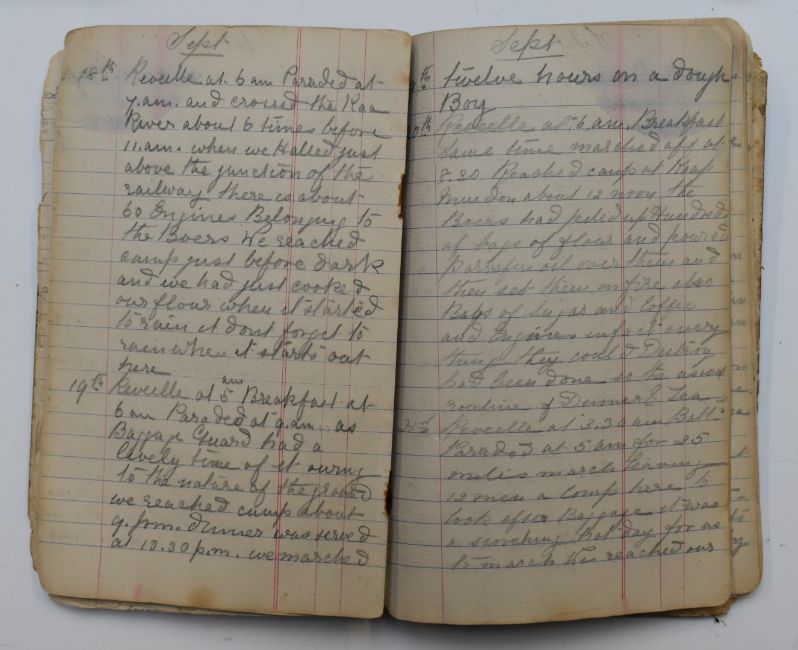 Sept
18th Reveille at 6 am Paraded at
7.am. and crossed the Kaa
River about 6 times before
11.am. when we Halted just
above the junction of the
railway there is about
60 Engines Belonging to
the Boers We reached
camp just before dark
and we had just cooked
our flour when it started
to rain it dont forget to
rain when it starts out
here
19th Reveille at 5 am Breakfast at
6 am Paraded at 9.am. as
Baggage Guard had a
lively time of it owing
to the nature of the ground
we reached camp about
9.p.m. dinner was served
at 10.30 p.m. we marched
Sept
th twelve hours on a dough
Boy
0th Reveille at 6 am. Breakfast
same time marched off at
8.30 Reached camp at Kaap
about 12 noon the
Boers had piled up Hundreds
of bags of flour and poured
Parrafin oil over them and
then set them on fire also
Bags of Sugar and Coffee
and Engines in fact every
thing they could Destroy
had been done so the usual
routine of Dinner & Tea
21st Reveille at 3.30 am Batt
Paraded at 5 am for 25
miles march leaving
12 men a Comp here to
look after Baggage it was
a scorching Hot day for us
to march We reached our